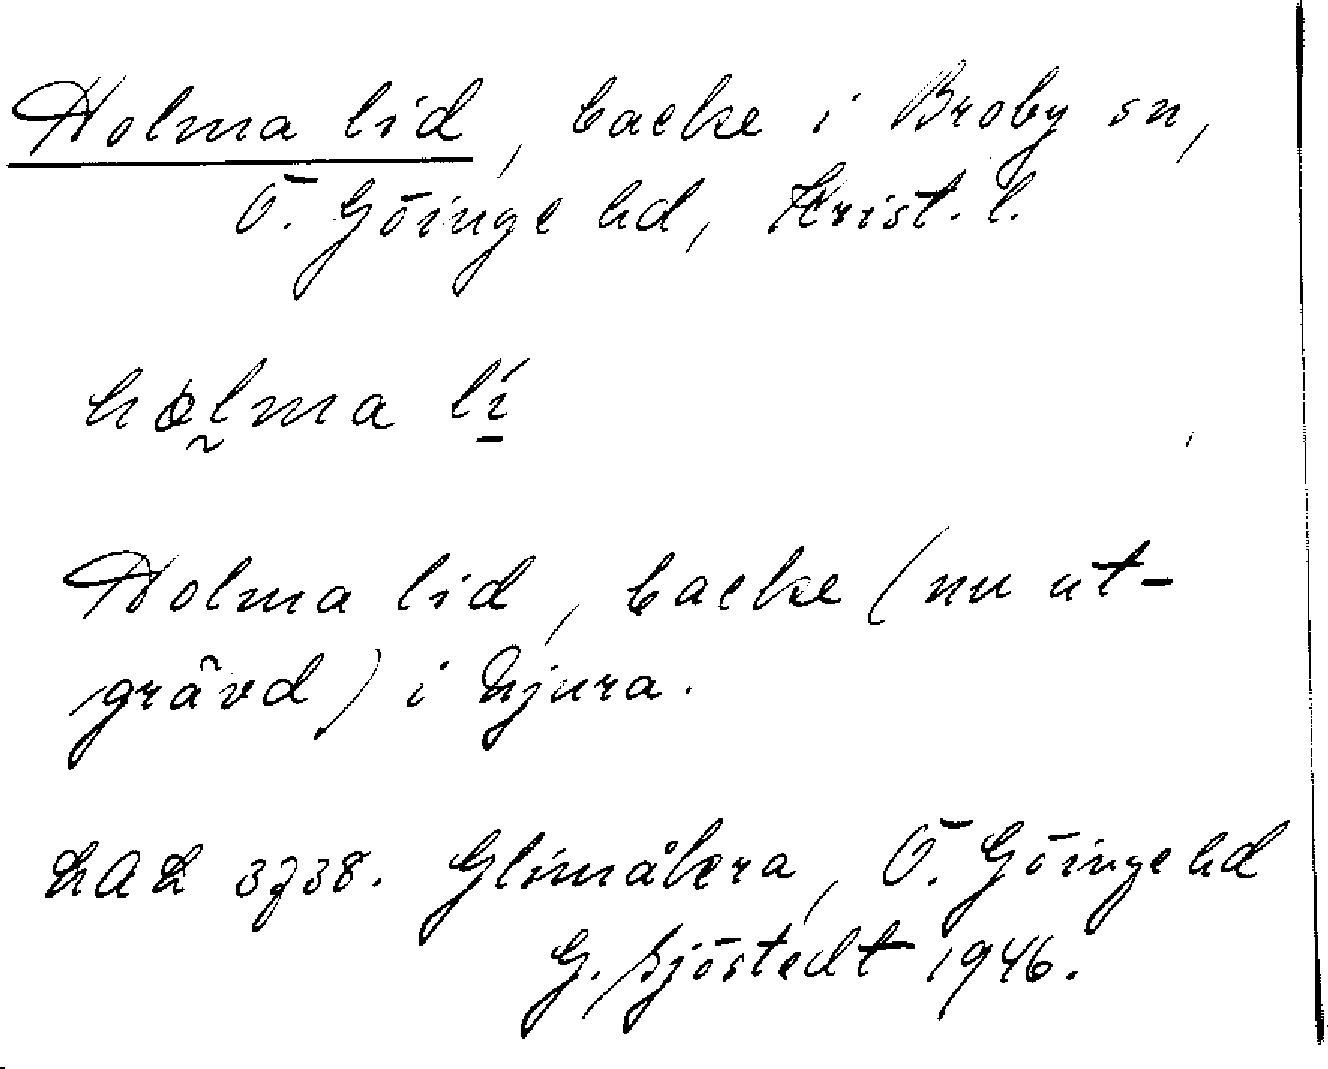 Holma lid, backe i Broby sn,
Ö. Göinge hd, Krist. l.
hɷlma lí
Holma lid, backe (nu ut-
grävd) i Ljura.
LAL 3738. Glimåkra, Ö. Göinge hd
G. Sjöstedt 1946.